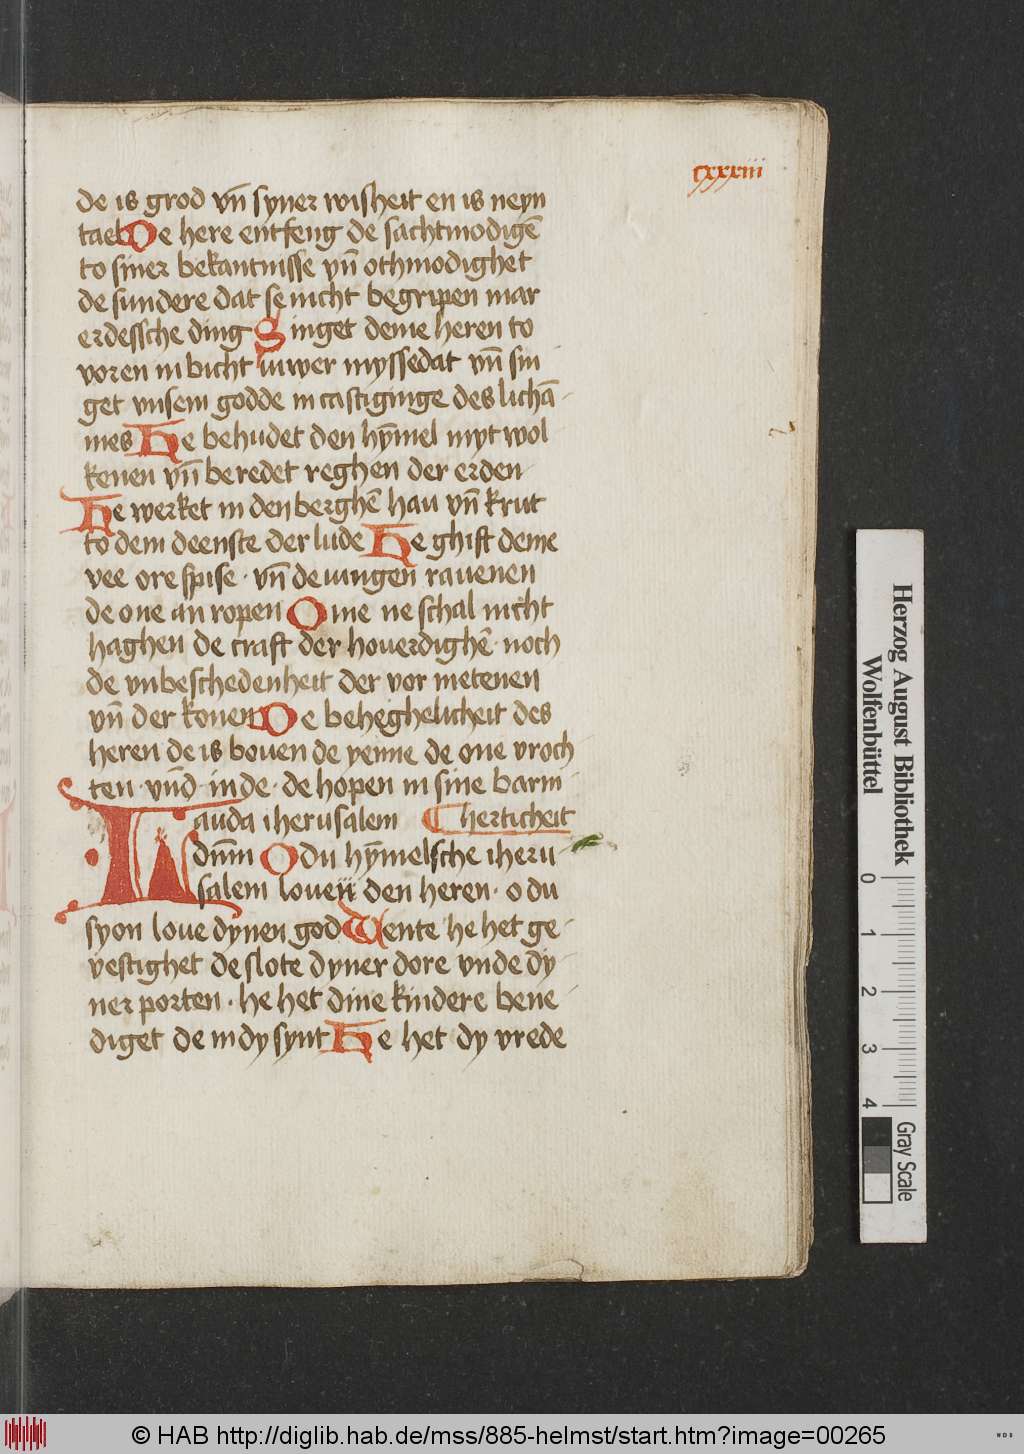 cxxxiii
de is grod vn̄ syner wisheit en is neyn
tael De here entfeng de sachtmodigē
to siner bekantnisse vn̄ othmodighet
de sundere dat se nicht begripen mar
erdessche ding Singet deme heren to
voren in bicht iuwer myssedat vn̄ sin
get vnsem godde in castiginge des lichā-
mes He behudet den hȳmel myt wol
kenen vn̄ beredet reghen der erden
He werket in den berghē hau vn̄ krut
to dem deenste der lude He ghift deme
vee ore spise · vn̄ de iungen rauenen
de one an ropen Ome ne schal nicht
haghen de craft der houerdighē · noch
de vnbeschedenheit der vor metenen
vn̄ der konen De beheghelicheit des
heren de is bouen de yenne de one vroch-
ten · vn̄d in de · de hopen in sine barm-
Lauda iherusalem herticheit
dn̄m O du hȳmelsche iheru-
salem louen den heren · o du
syon loue dynen god Wente he het ge-
vestighet de slote dyner dore vnde dy-
ner porten · he het dine kindere bene-
diget de in dy synt He het dy vrede
Herzog August Bibliothek
Wolfenbüttel
0 1 2 3 4
Gray Scale
© HAB http://diglib.hab.de/mss/885-helmst/start.htm?image=00265